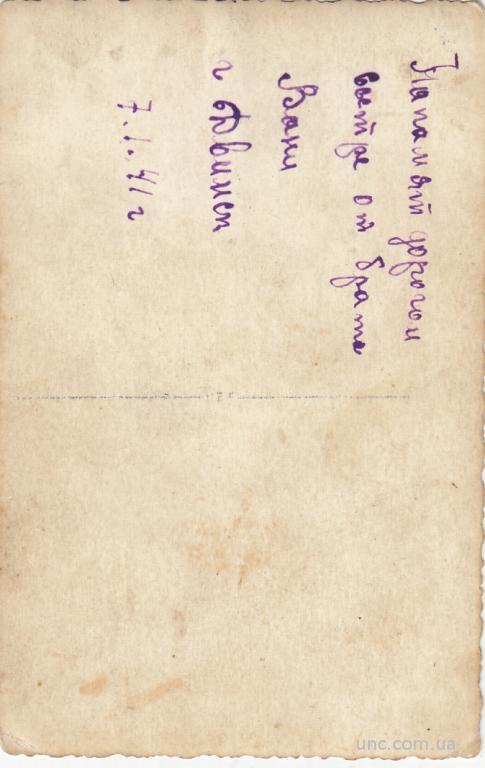 На памят дорогой
сестре от брата
Вани
г Двинск
7.1.41 г
unc.com.ua